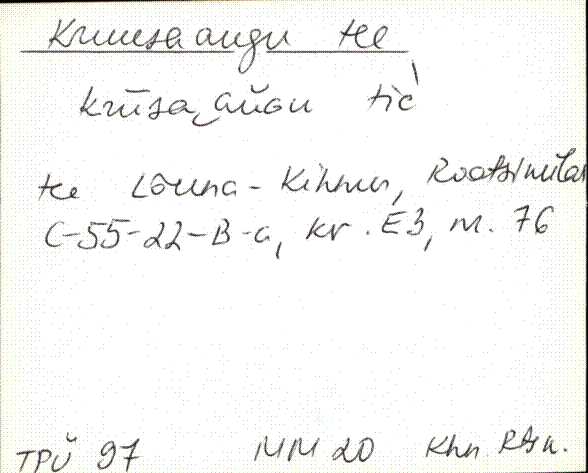 Kruusaaugu tee
krūsa‿aŭgu tiè
tee Lõuna-Kihnus, Rootsiküla
C-55-22-B-a, kr. E3, m. 76
TPÜ 97 MM 20 Khn